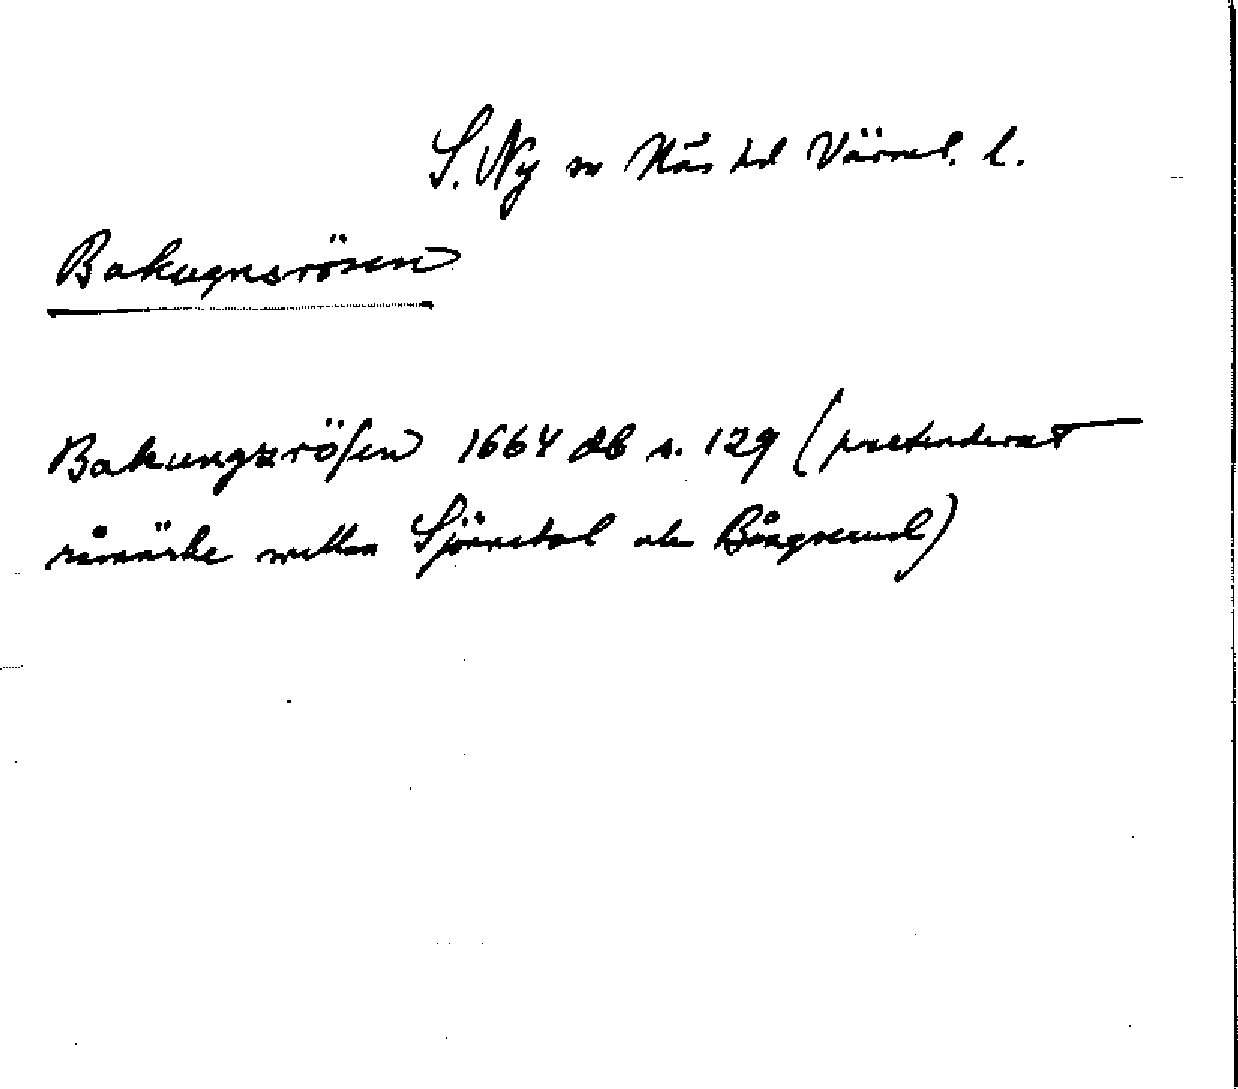 S. Ny sn Näs hd Värml. l.
Bakugnsrösen
Bakungzrösen 1664 db s. 129 (pretenderat
råmärke mellan Sjönstol och Bångserud)